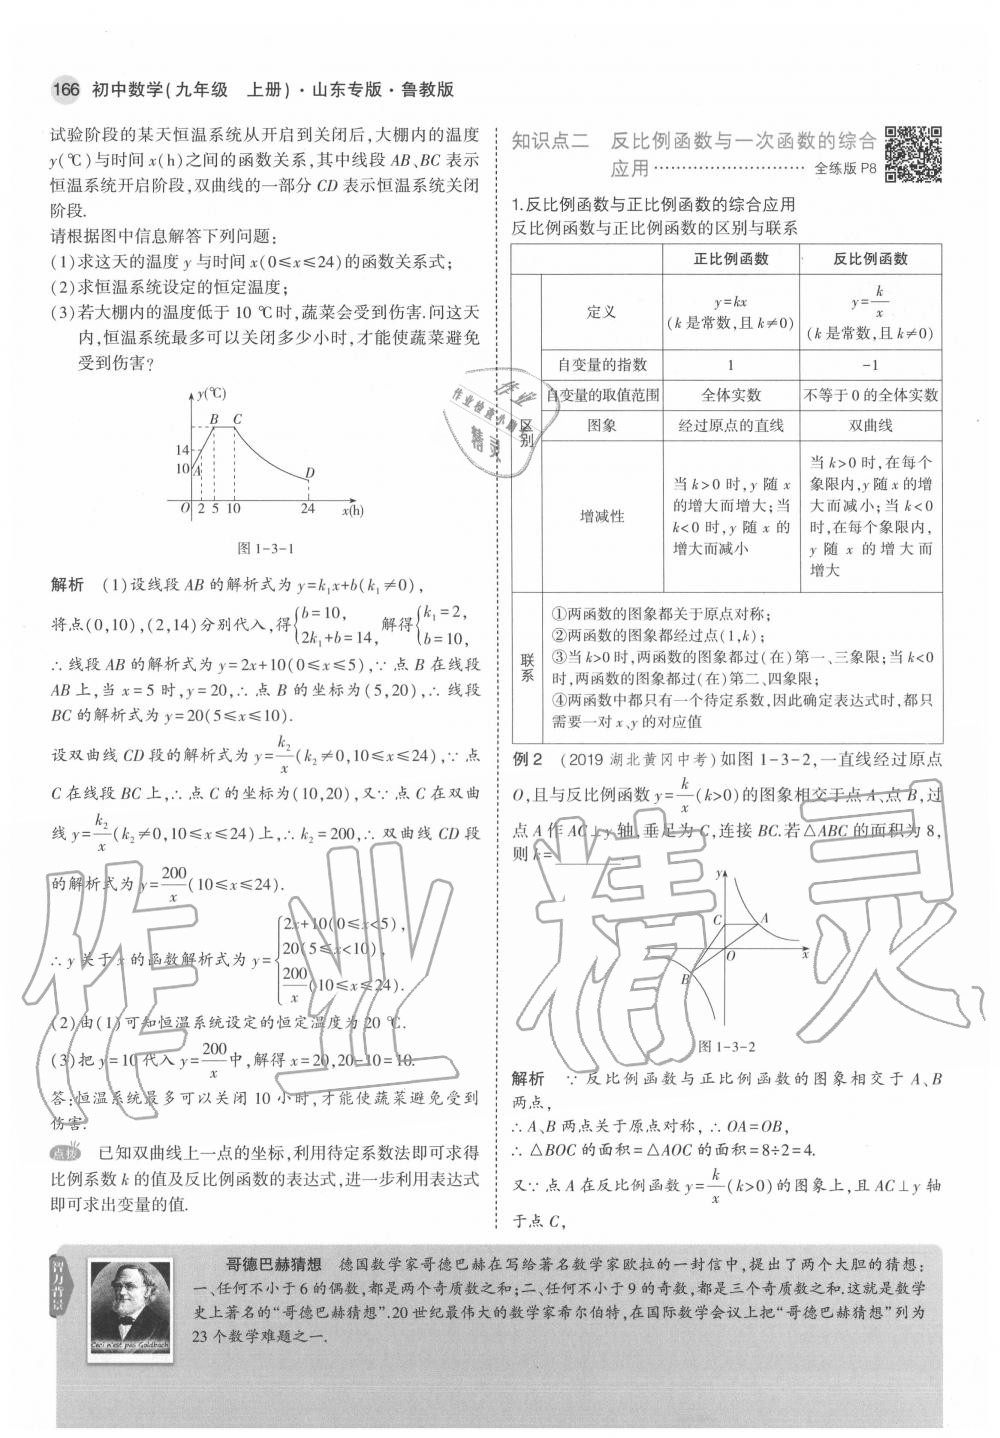 166 初中数学(九年级　上册)·山东专版·鲁教版
试验阶段的某天恒温系统从开启到关闭后,大棚内的温度
y(℃)与时间 x(h)之间的函数关系,其中线段 AB、BC 表示
恒温系统开启阶段,双曲线的一部分 CD 表示恒温系统关闭
阶段.
请根据图中信息解答下列问题:
(1)求这天的温度 y 与时间 x(0≤x≤24)的函数关系式;
(2)求恒温系统设定的恒定温度;
(3)若大棚内的温度低于 10 ℃时,蔬菜会受到伤害.问这天
内,恒温系统最多可以关闭多少小时,才能使蔬菜避免
受到伤害?
y(℃)
B C
14
10 A D
O 2 5 10 24 x(h)
图 1-3-1
解析 (1)设线段 AB 的解析式为 y=k₁x+b(k₁≠0),
将点(0,10),(2,14)分别代入,得{b=10, 2k₁+b=14, 解得{k₁=2, b=10,
∴ 线段 AB 的解析式为 y=2x+10(0≤x≤5),∵ 点 B 在线段
AB 上,当 x=5 时,y=20,∴ 点 B 的坐标为(5,20),∴ 线段
BC 的解析式为 y=20(5≤x≤10).
设双曲线 CD 段的解析式为 y=k₂/x(k₂≠0,10≤x≤24),∵ 点
C 在线段 BC 上,∴ 点 C 的坐标为(10,20),又∵ 点 C 在双曲
线 y=k₂/x(k₂≠0,10≤x≤24)上,∴ k₂=200,∴ 双曲线 CD 段
的解析式为 y=200/x(10≤x≤24).
∴ y 关于 x 的函数解析式为 y={2x+10(0≤x<5), 20(5≤x<10), 200/x(10≤x≤24).
(2)由(1)可知恒温系统设定的恒定温度为 20 ℃.
(3)把 y=10 代入 y=200/x中,解得 x=20,20-10=10.
答:恒温系统最多可以关闭 10 小时,才能使蔬菜避免受到
伤害.
点拨 已知双曲线上一点的坐标,利用待定系数法即可求得
比例系数 k 的值及反比例函数的表达式,进一步利用表达式
即可求出变量的值.
知识点二 反比例函数与一次函数的综合
应用………………………全练版 P8
1.反比例函数与正比例函数的综合应用
反比例函数与正比例函数的区别与联系
正比例函数 反比例函数
区别
定义 y=kx (k 是常数,且 k≠0) y=k/x (k 是常数,且 k≠0)
自变量的指数 1 -1
自变量的取值范围 全体实数 不等于 0 的全体实数
图象 经过原点的直线 双曲线
增减性
当 k>0 时,y 随 x
的增大而增大;当
k<0 时,y 随 x 的
增大而减小
当 k>0 时,在每个
象限内,y 随 x 的增
大而减小;当 k<0
时,在每个象限内,
y 随 x 的增大而
增大
联系
①两函数的图象都关于原点对称;
②两函数的图象都经过点(1,k);
③当 k>0 时,两函数的图象都过(在)第一、三象限;当 k<0
时,两函数的图象都过(在)第二、四象限;
④两函数中都只有一个待定系数,因此确定表达式时,都只
需要一对 x、y 的对应值
例 2 (2019 湖北黄冈中考)如图 1-3-2,一直线经过原点
O,且与反比例函数 y=k/x(k>0)的图象相交于点 A、点 B,过
点 A 作 AC⊥y 轴,垂足为 C,连接 BC.若△ABC 的面积为 8,
则 k=________.
y
C A
O x
B
图 1-3-2
解析 ∵ 反比例函数与正比例函数的图象相交于 A、B
两点,
∴ A、B 两点关于原点对称,∴ OA=OB,
∴ △BOC 的面积=△AOC 的面积=8÷2=4.
又∵ 点 A 在反比例函数 y=k/x(k>0)的图象上,且 AC⊥y 轴
于点 C,
智力背景
Ceci n'est pas Goldbach
哥德巴赫猜想 德国数学家哥德巴赫在写给著名数学家欧拉的一封信中,提出了两个大胆的猜想:
一、任何不小于 6 的偶数,都是两个奇质数之和;二、任何不小于 9 的奇数,都是三个奇质数之和.这就是数学
史上著名的“哥德巴赫猜想”.20 世纪最伟大的数学家希尔伯特,在国际数学会议上把“哥德巴赫猜想”列为
23 个数学难题之一.
作业精灵
作业
作业检查小
精灵